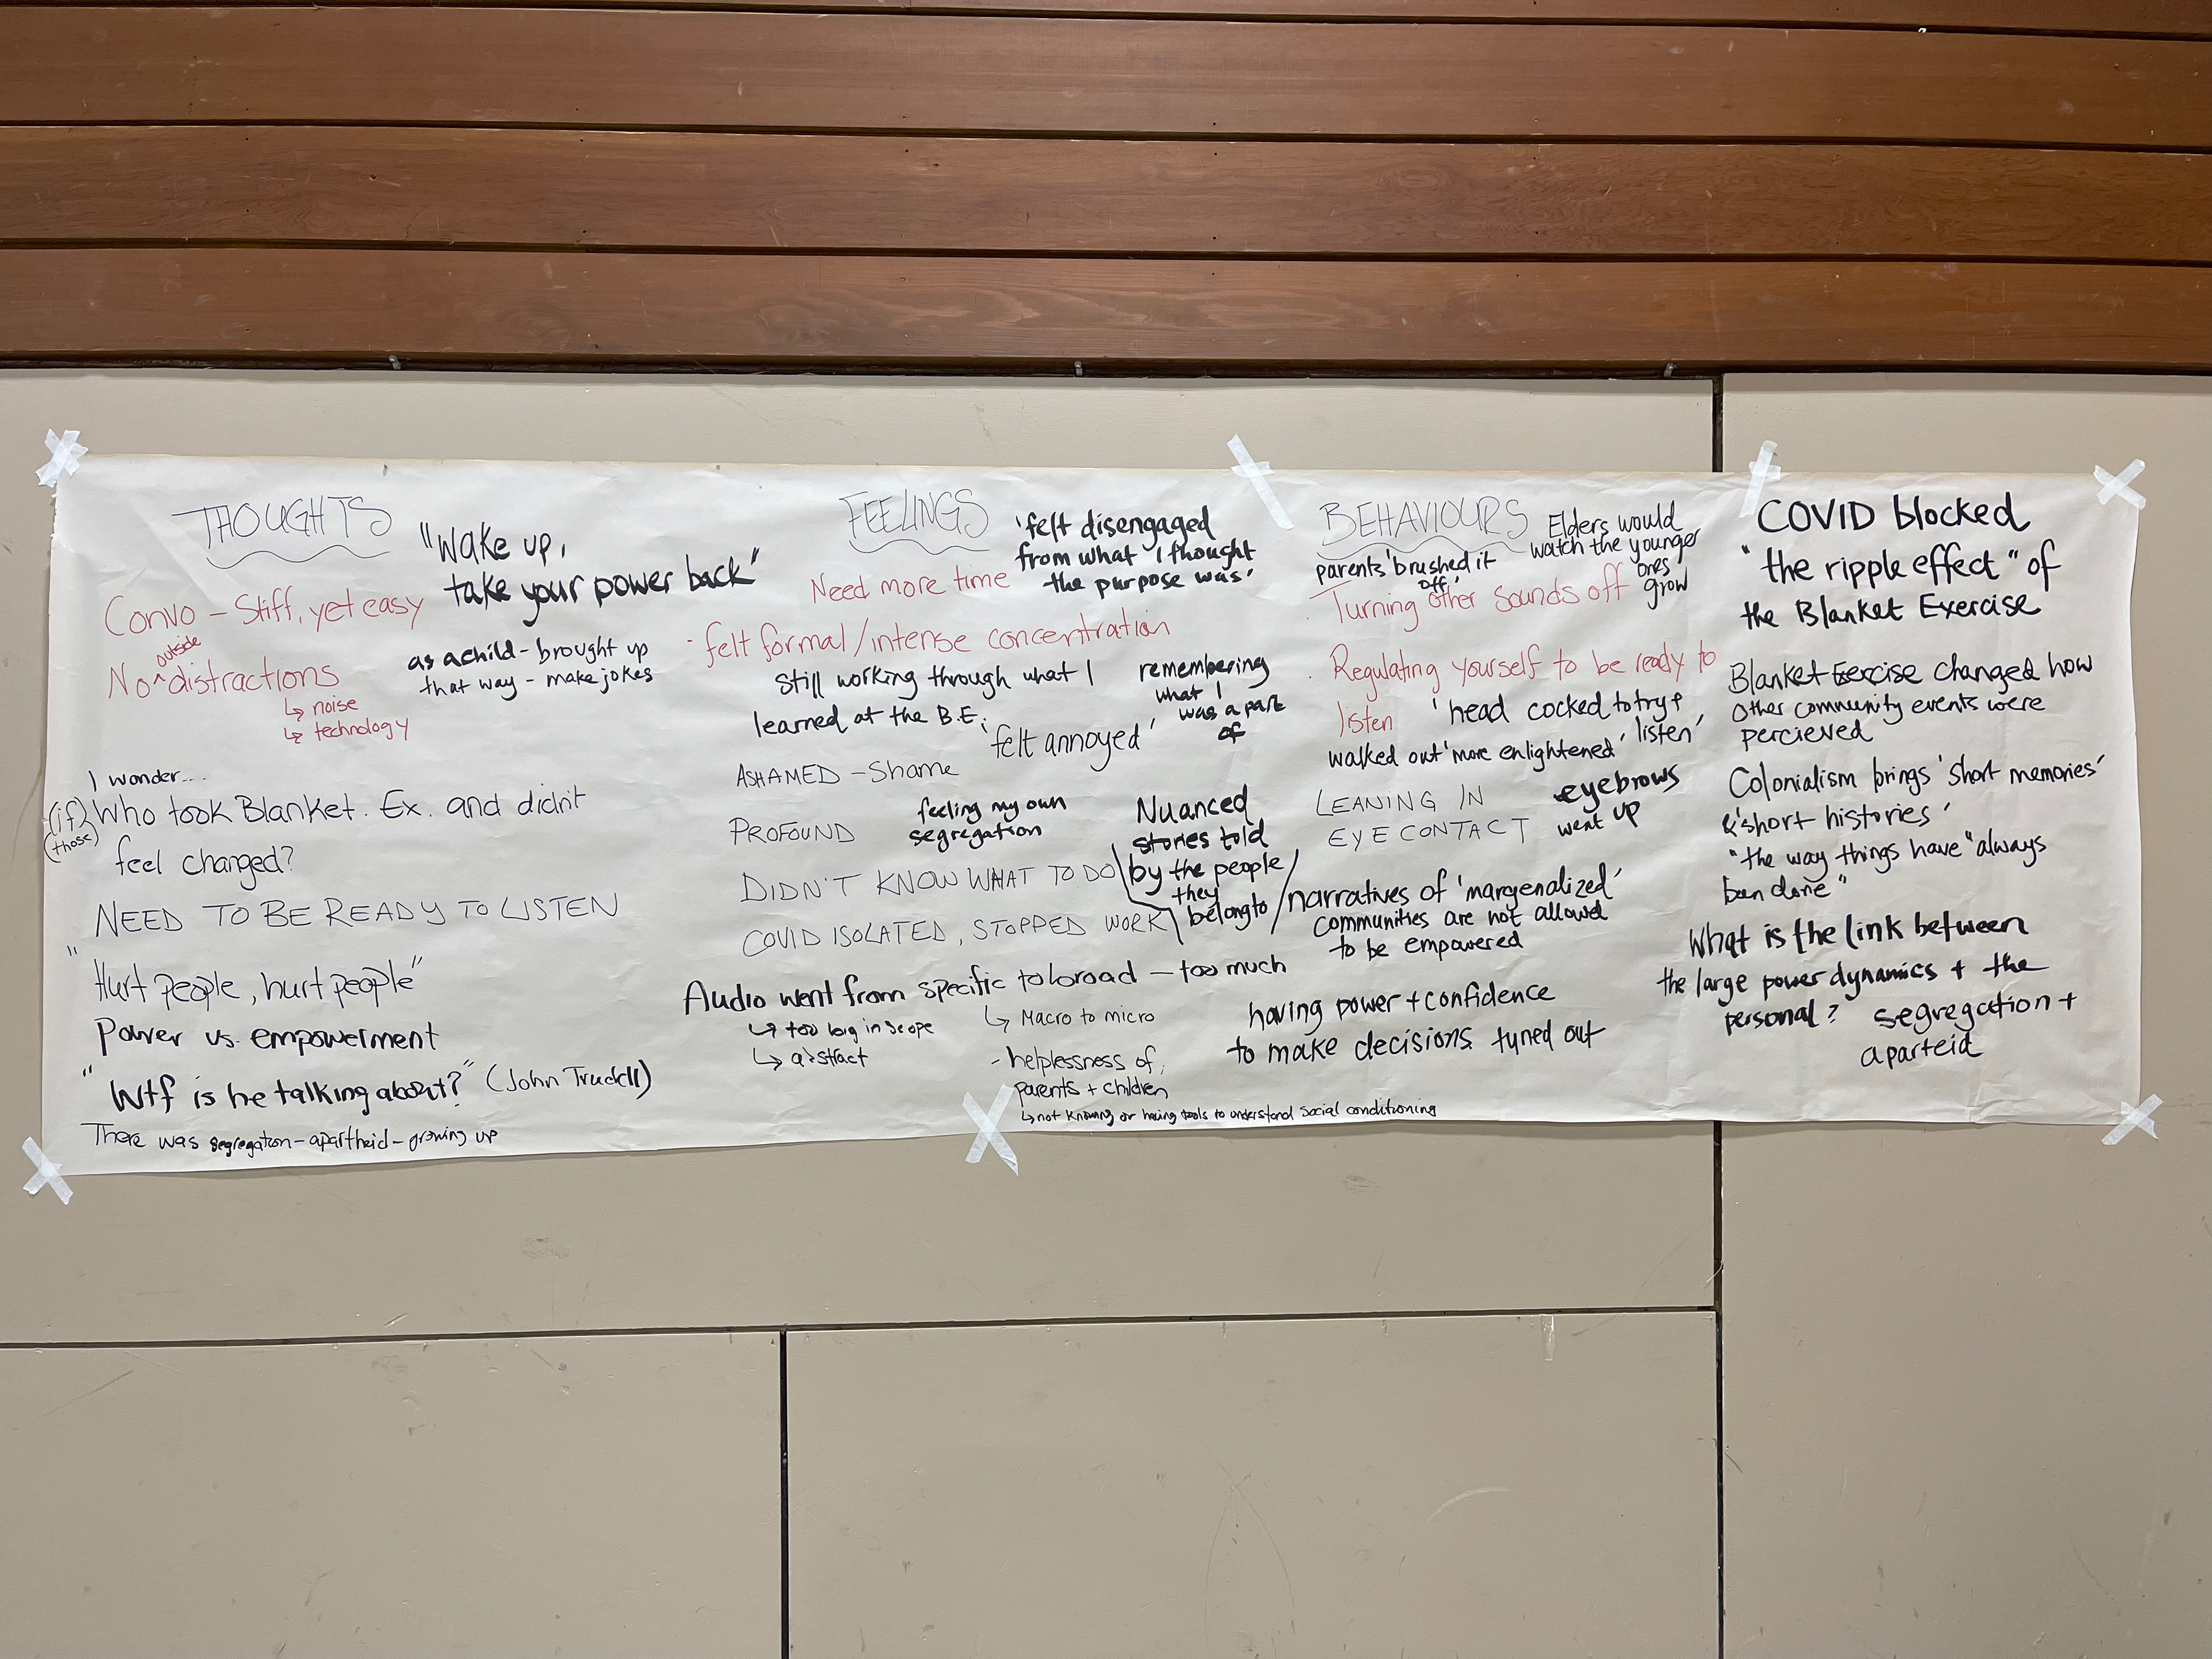 THOUGHTS
"Wake up,
take your power back"
Convo – Stiff, yet easy
No ^ outside distractions
↳ noise
↳ technology
as a child – brought up
that way – make jokes
I wonder....
(if) Who took Blanket. Ex. and didn't
(those)
feel changed?
NEED TO BE READY TO LISTEN
"Hurt people, hurt people"
Power vs. empowerment
"Wtf is he talking about?" (John Trudell)
There was segregation – apartheid – growing up
FEELINGS
'felt disengaged
from what I thought
the purpose was'
Need more time
- felt formal/intense concentration
still working through what I
learned at the B.E.
remembering
what I
was a part
of
'felt annoyed'
ASHAMED – Shame
PROFOUND
feeling my own
segregation
Nuanced
stories told
by the people
they
belong to
DIDN'T KNOW WHAT TO DO
COVID ISOLATED, STOPPED WORK
Audio went from specific to broad – too much
↳ too big in scope
↳ abstract
↳ Macro to micro
- helplessness of
parents + children
↳ not knowing or having tools to understand social conditioning
BEHAVIOURS
Elders would
watch the younger
ones
grow
parents 'brushed it
off'
· Turning other sounds off
· Regulating yourself to be ready to
listen
'head cocked to try +
listen'
walked out 'more enlightened'
LEANING IN
EYE CONTACT
eyebrows
went up
narratives of 'margenalized'
communities are not allowed
to be empowered
having power + confidence
to make decisions tuned out
COVID blocked
"the ripple effect" of
the Blanket Exercise
Blanket Exercise changed how
other community events were
percieved
Colonialism brings 'short memories'
& 'short histories'
"the way things have "always
been done"
What is the link between
the large power dynamics + the
personal?
segregation +
aparteid